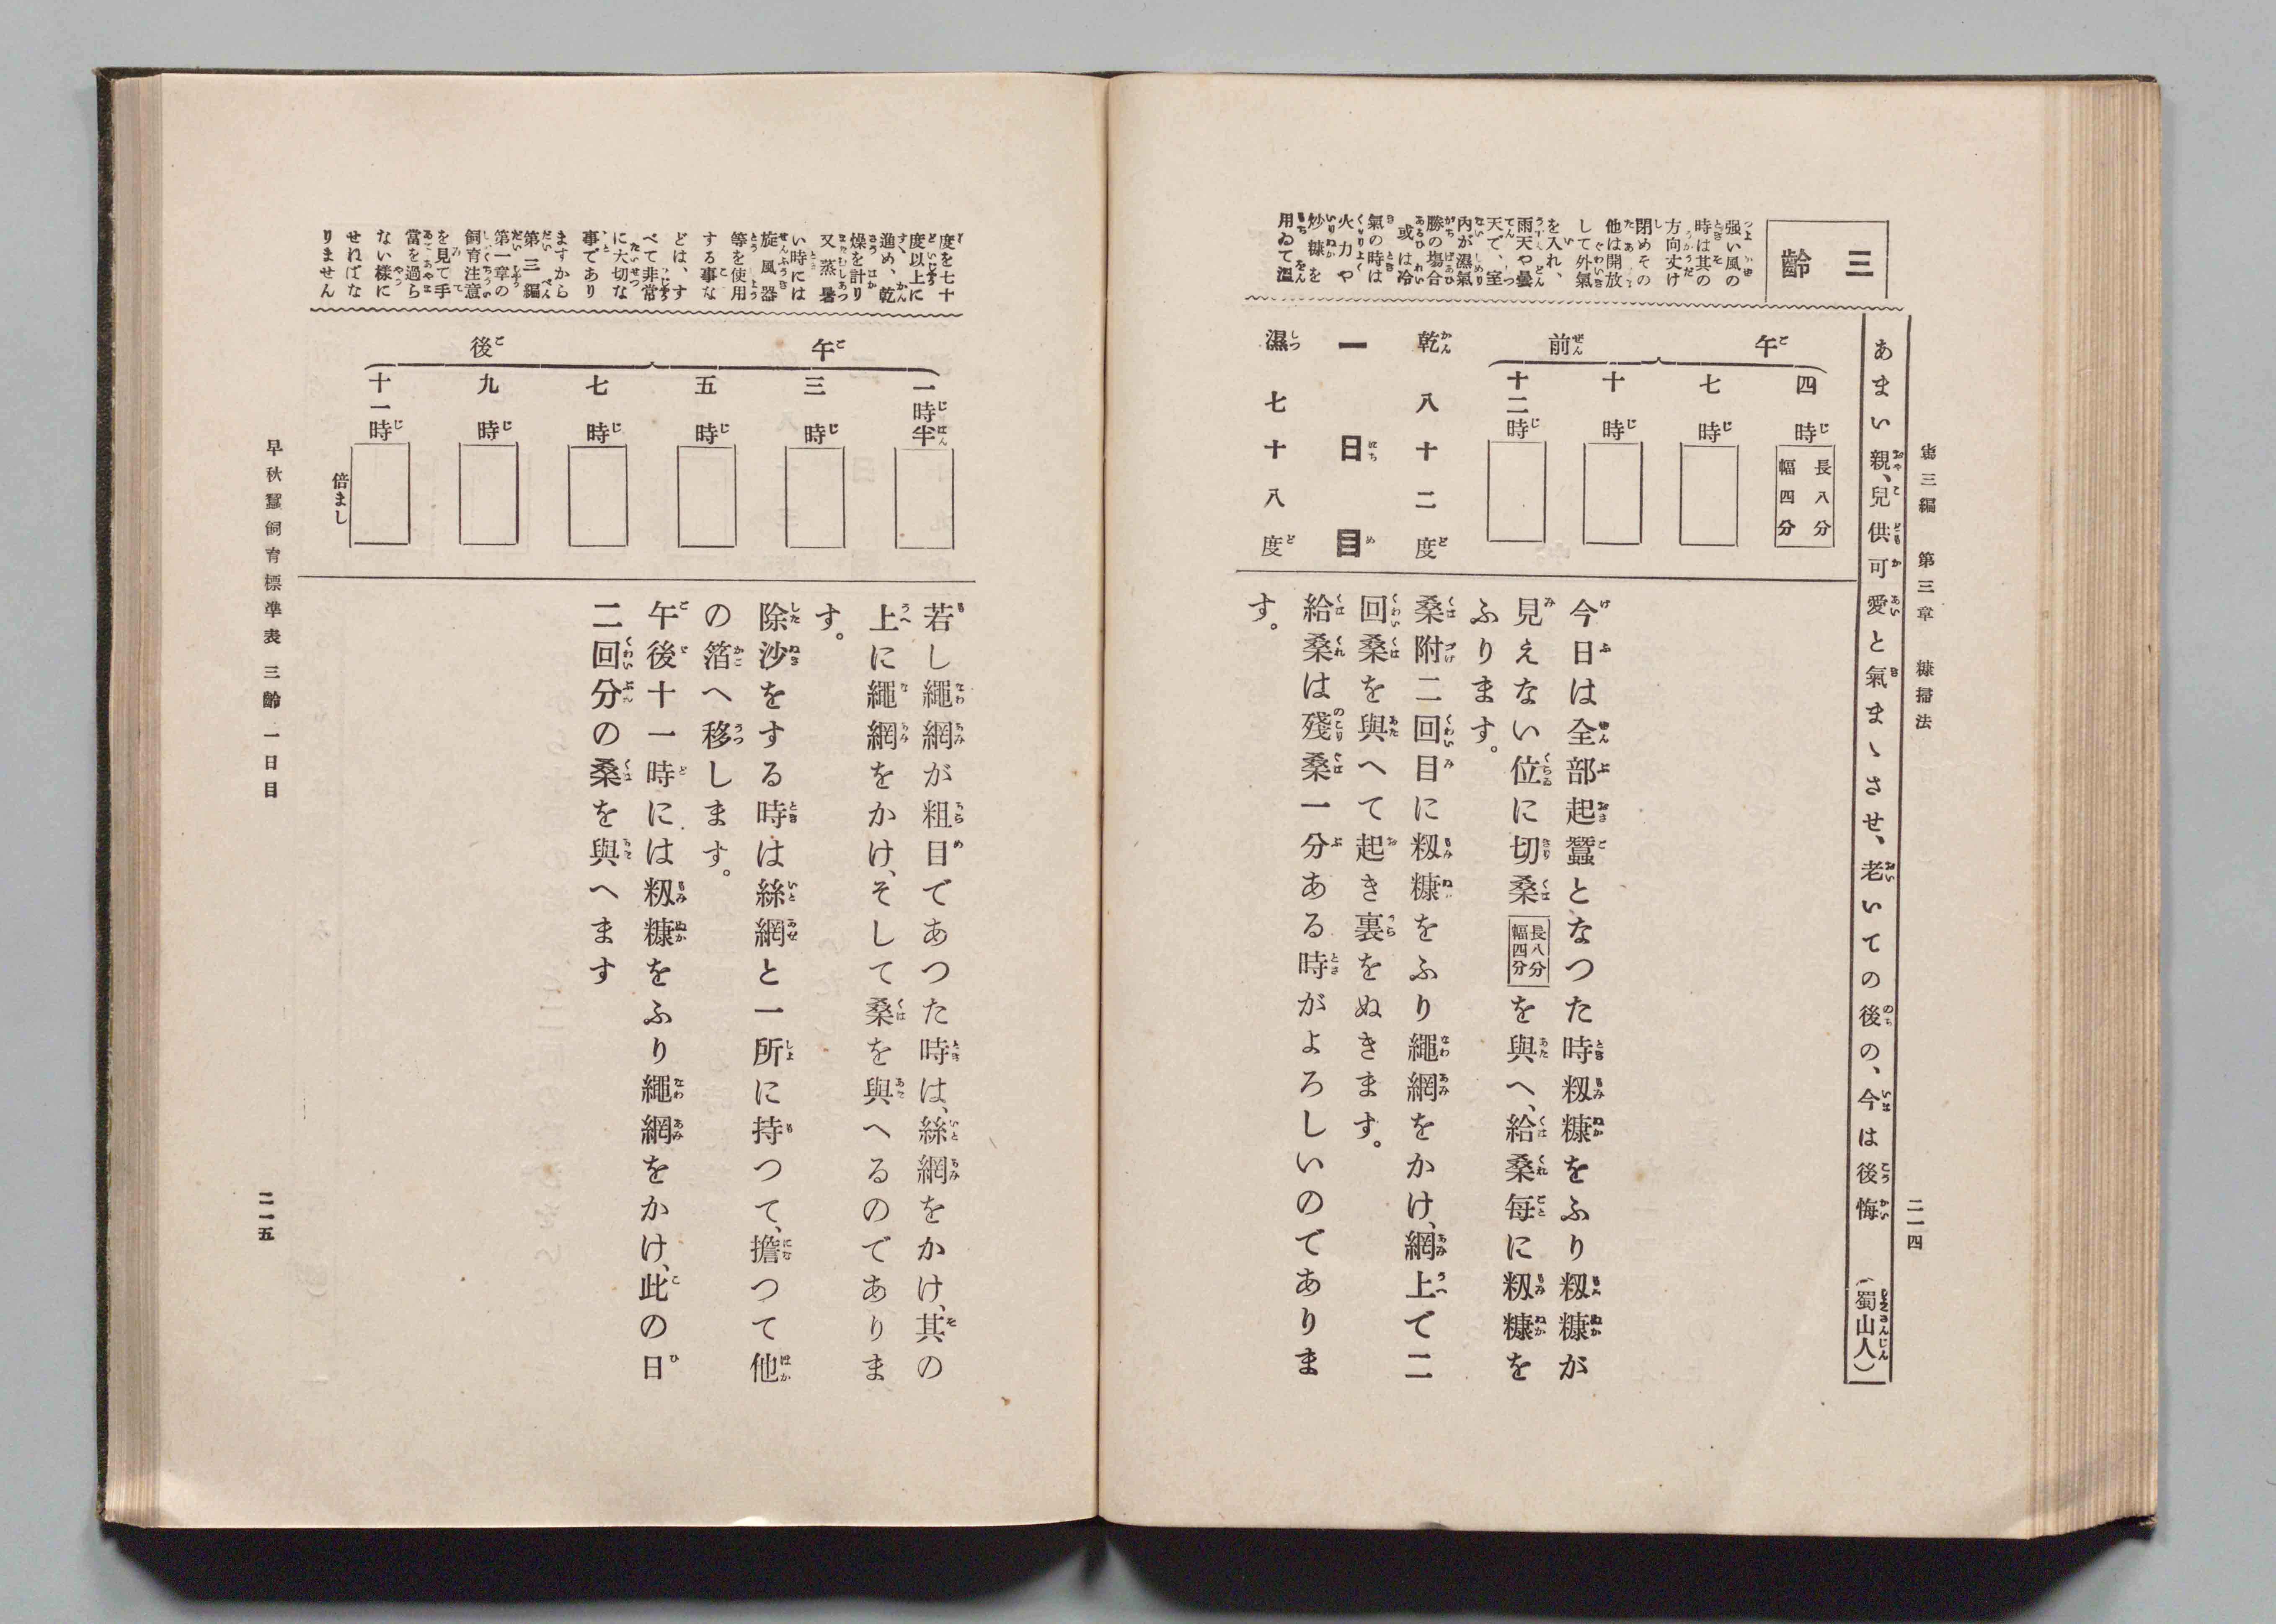 第三編　第三章　糠掃法
二一四
あまい親、兒供可愛と氣まゝさせ、老いての後の、今は後悔　（蜀山人）
三齡
强い風の
時は其の
方向丈け
閉めその
他は開放
して外氣
を入れ、
雨天や曇
天で、室
内が濕氣
勝の塲合
或は冷
氣の時は
火力や
炒糠を
用ゐて溫
午前
四時
長八分
幅四分
七時
十時
十二時
乾八十二度
一日目
濕七十八度
今日は全部起蠶となつた時籾糠をふり籾糠が
見えない位に切桑
長八分
幅四分
を與へ、給桑每に籾糠を
ふります。
桑附二回目に籾糠をふり繩網をかけ、網上で二
回桑を與へて起き裏をぬきます。
給桑は殘桑一分ある時がよろしいのでありま
す。
度を七十
度以上に
進め、乾
燥を計り
又蒸暑
い時には
旋風器
等を使用
する事な
どは、す
べて非常
に大切な
事であり
ますから
第三編
第一章の
飼育注意
を見て手
當を過ら
ない樣に
せればな
りません
午後
一時半
三時
五時
七時
九時
十一時
倍まし
若し繩網が粗目であつた時は、絲網をかけ、其の
上に繩網をかけ、そして桑を與へるのでありま
す。
除沙をする時は絲網と一所に持つて、擔つて他
の箔へ移します。
午後十一時には籾糠をふり繩網をかけ、此の日
二回分の桑を與へます
早秋蠶飼育標準表　三齡　一日目
二一五